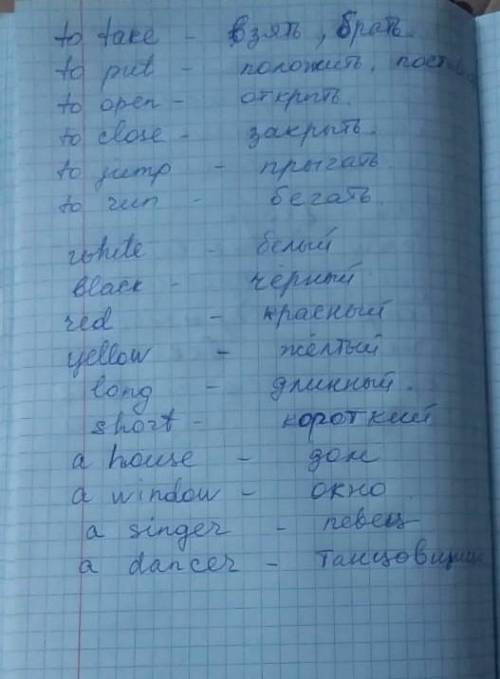 to take - взять, брать.
to put - положить,
to open - открыть.
to close - закрыть.
to jump - прыгать
to run - бегать.
white - белый
black - чёрный
red - красный
yellow - жёлтый
long - длинный.
short - короткий
a house - дом
a window - окно
a singer - певец
a dancer -